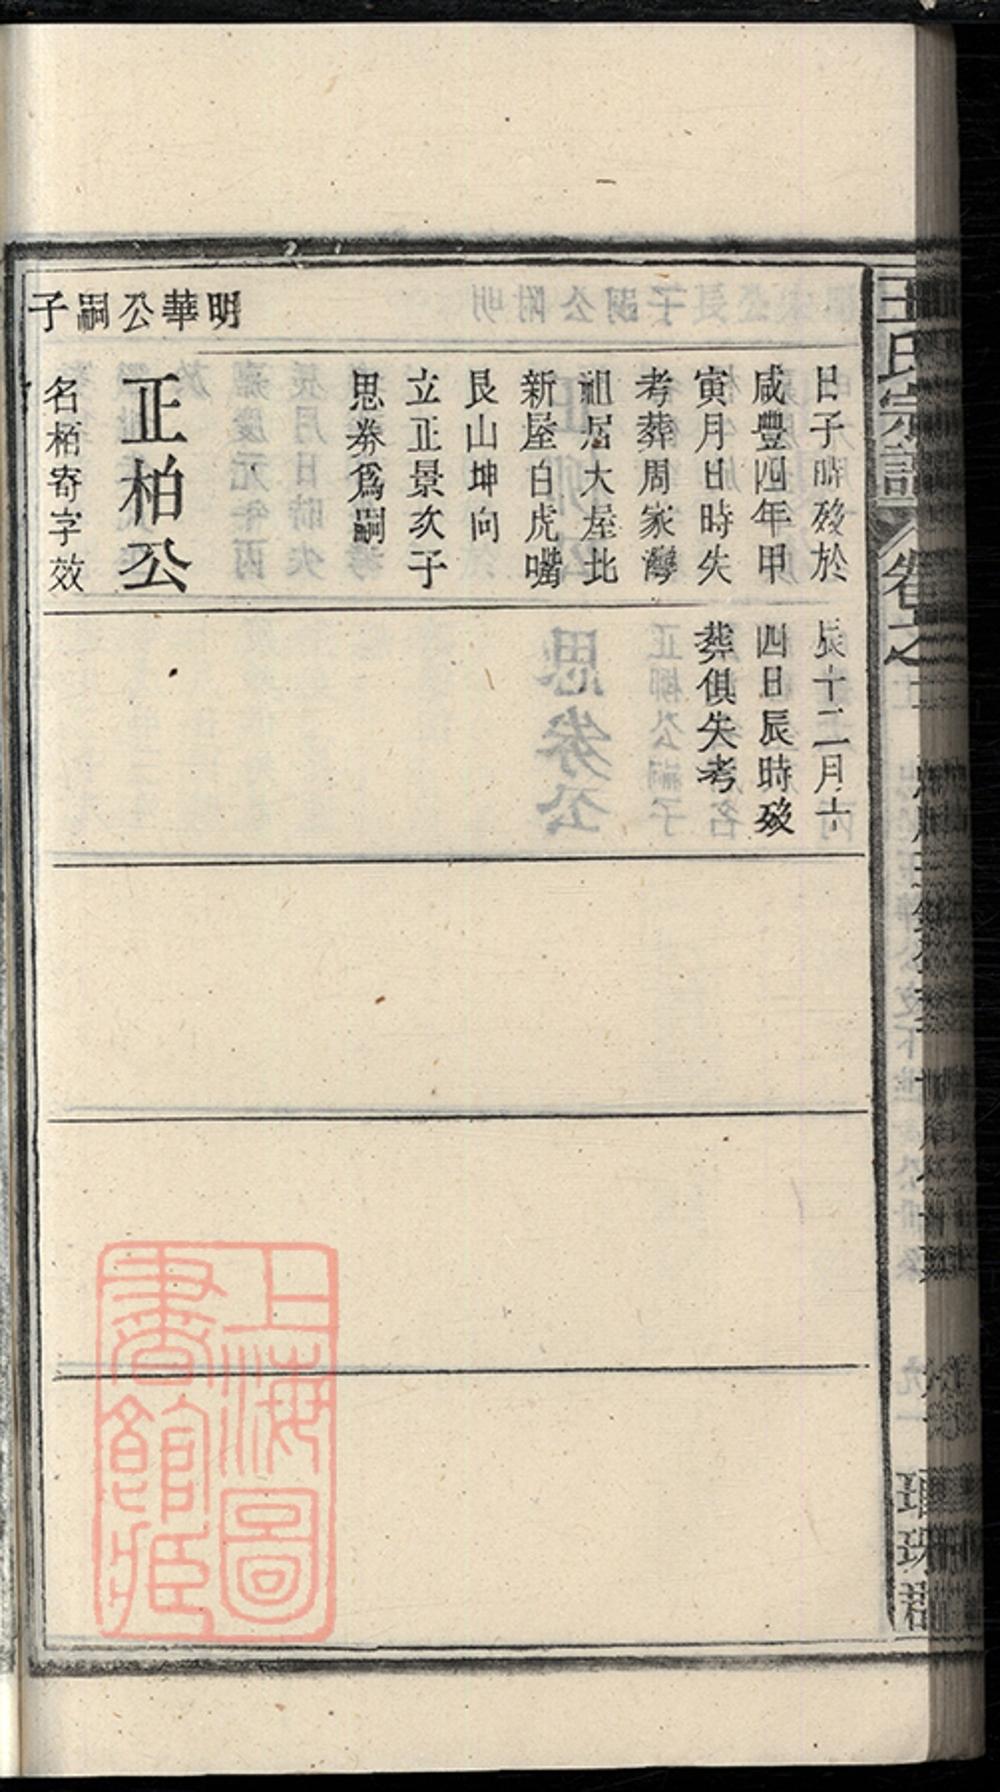 王氏宗譜
卷之
日子時歿於
咸豐四年甲
寅月日時失
考葬周家灣
祖居大屋北
新屋白虎嘴
艮山坤向
立正景次子
思劵爲嗣
辰十二月十
四日辰時歿
葬俱失考
明華公嗣子
正柏公
名栢寄字效
上海圖
書館藏